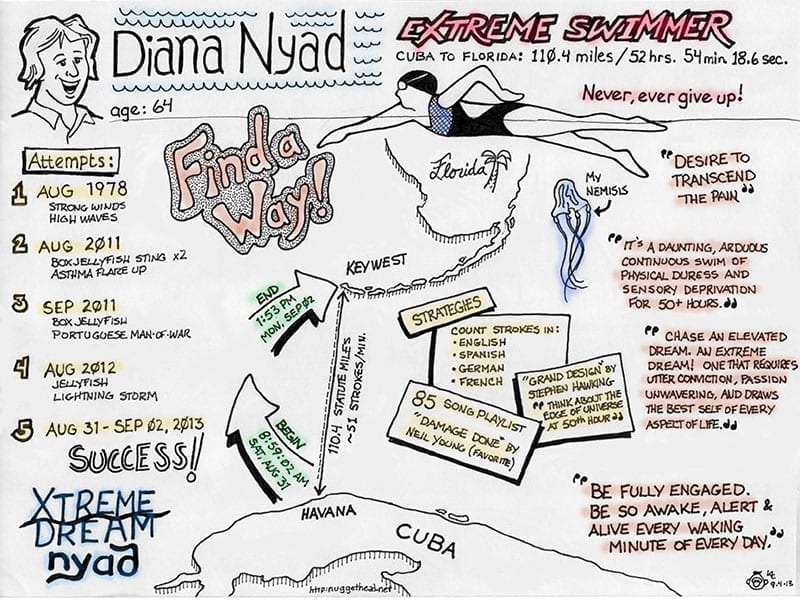 Diana Nyad
age: 64
EXTREME SWIMMER
CUBA TO FLORIDA: 110.4 miles/52hrs. 54min. 18.6 sec.
Never, ever give up!
Find a
Way!
Attempts:
1 AUG 1978
STRONG WINDS
HIGH WAVES
2 AUG 2011
BOX JELLYFISH STING x2
ASTHMA FLARE UP
3 SEP 2011
BOX JELLYFISH
PORTUGUESE MAN-OF-WAR
4 AUG 2012
JELLYFISH
LIGHTNING STORM
5 AUG 31 - SEP 02, 2013
SUCCESS!!
XTREME
DREAM
nyad
Florida
KEY WEST
END
1:53 PM
MON, SEP 02
110.4 STATUTE MILE'S
~51 STROKES/MIN.
BEGIN
8:59:02 AM
SAT, AUG 31
HAVANA
CUBA
http:nuggethead.net
MY
NEMISIS
STRATEGIES
COUNT STROKES IN:
• ENGLISH
• SPANISH
• GERMAN
• FRENCH
"GRAND DESIGN" BY
STEPHEN HAWKING
"THINK ABOUT THE
EDGE OF UNIVERSE
AT 50th HOUR"
85 SONG PLAYLIST
"DAMAGE DONE" BY
NEIL YOUNG (FAVORITE)
"DESIRE TO
TRANSCEND
THE PAIN"
"IT'S A DAUNTING, ARDUOUS
CONTINUOUS SWIM OF
PHYSICAL DURESS AND
SENSORY DEPRIVATION
FOR 50+ HOURS."
"CHASE AN ELEVATED
DREAM. AN EXTREME
DREAM! ONE THAT REQUIRES
UTTER CONVICTION, PASSION
UNWAVERING, AUD DRAWS
THE BEST SELF OF EVERY
ASPECT OF LIFE."
"BE FULLY ENGAGED.
BE SO AWAKE, ALERT &
ALIVE EVERY WAKING
MINUTE OF EVERY DAY."
9.4.13